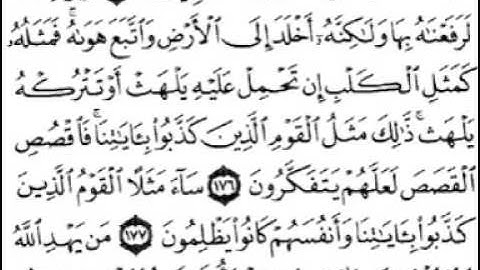 لَرَفَعْنَٰهُ بِهَا وَلَٰكِنَّهُۥٓ أَخْلَدَ إِلَى ٱلْأَرْضِ وَٱتَّبَعَ هَوَىٰهُ ۚ فَمَثَلُهُۥ
كَمَثَلِ ٱلْكَلْبِ إِن تَحْمِلْ عَلَيْهِ يَلْهَثْ أَوْ تَتْرُكْهُ
يَلْهَث ۚ ذَّٰلِكَ مَثَلُ ٱلْقَوْمِ ٱلَّذِينَ كَذَّبُوا۟ بِـَٔايَٰتِنَا ۚ فَٱقْصُصِ
ٱلْقَصَصَ لَعَلَّهُمْ يَتَفَكَّرُونَ ١٧٦ سَآءَ مَثَلًا ٱلْقَوْمُ ٱلَّذِينَ
كَذَّبُوا۟ بِـَٔايَٰتِنَا وَأَنفُسَهُمْ كَانُوا۟ يَظْلِمُونَ ١٧٧ مَن يَهْدِ ٱللَّهُ